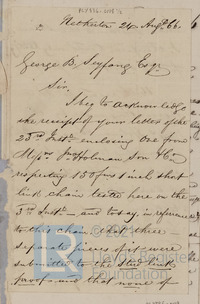 Netherton 24 Augt 66.
George B. Seyfang Esqr.
Sir,
I beg to acknowledge
the receipt of your letter of the
23rd Inst. enclosing one from
Messrs. Holman Son & Co
respecting 150 fms 1 inch short
link chain tested here on the
3rd Inst. and to say, in reference
to this chain that three
separate pieces of it were
submitted to the
proof and that none of
Lloyd's Register
Foundation